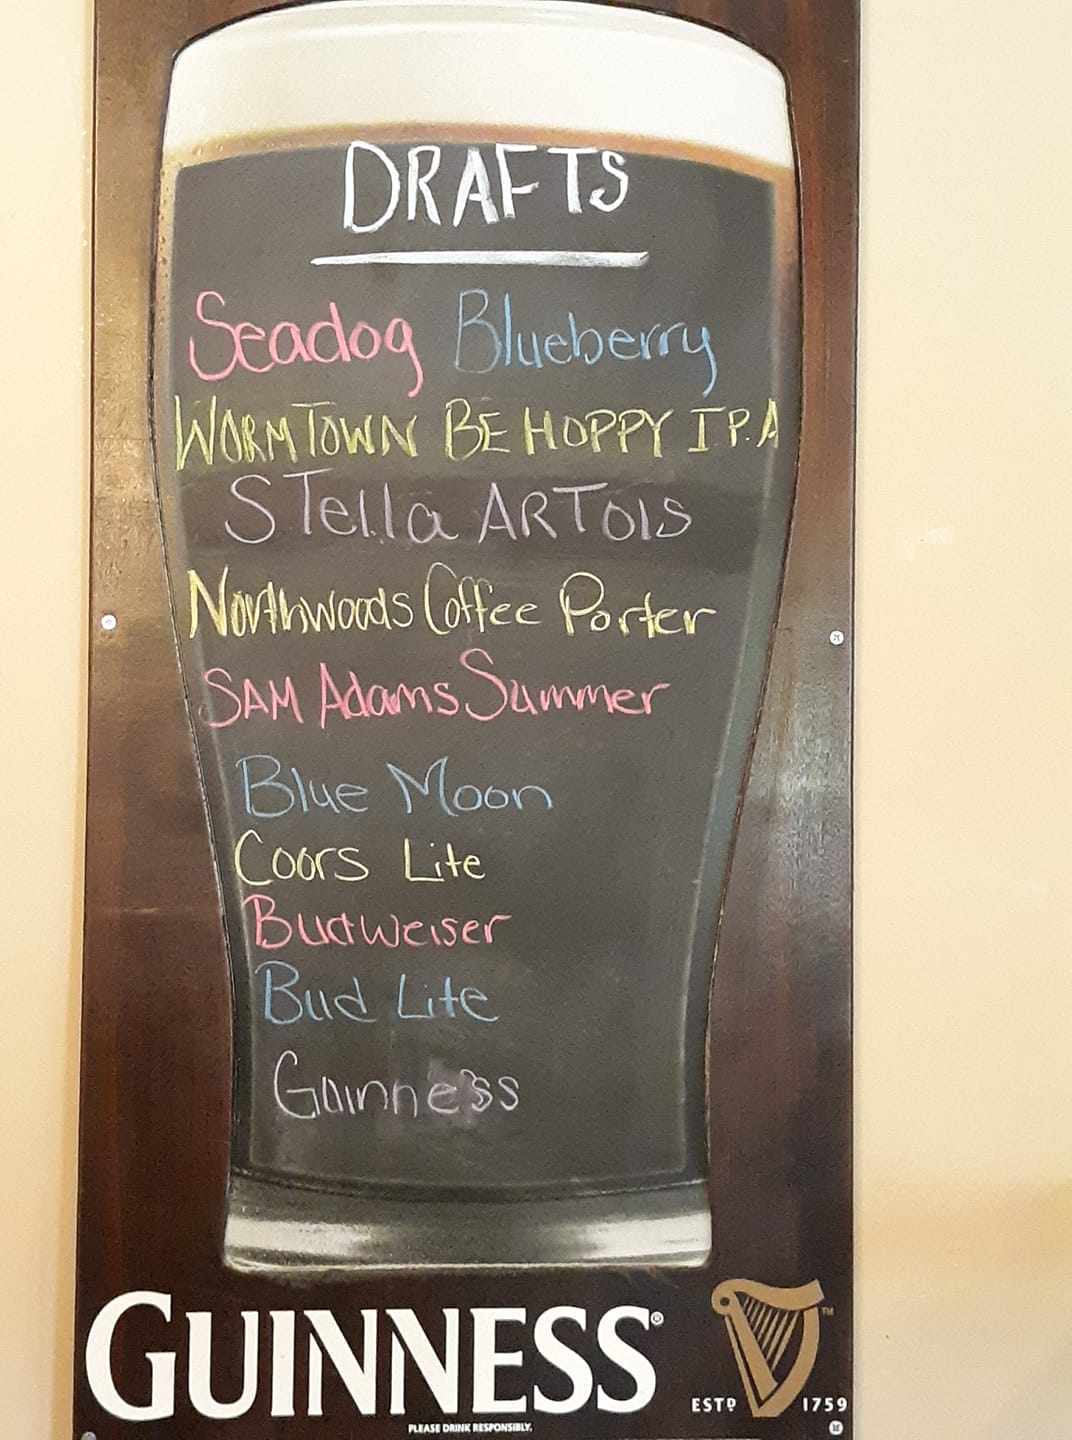 DRAFTS
Seadog Blueberry
WORMTOWN BE HOPPY I P.A
STella ARTOIS
Northwoods Coffee Porter
SAM Adams Summer
Blue Moon
Coors Lite
Budweiser
Bud Lite
Guinness
GUINNESS®
TM
ESTD 1759
PLEASE DRINK RESPONSIBLY.